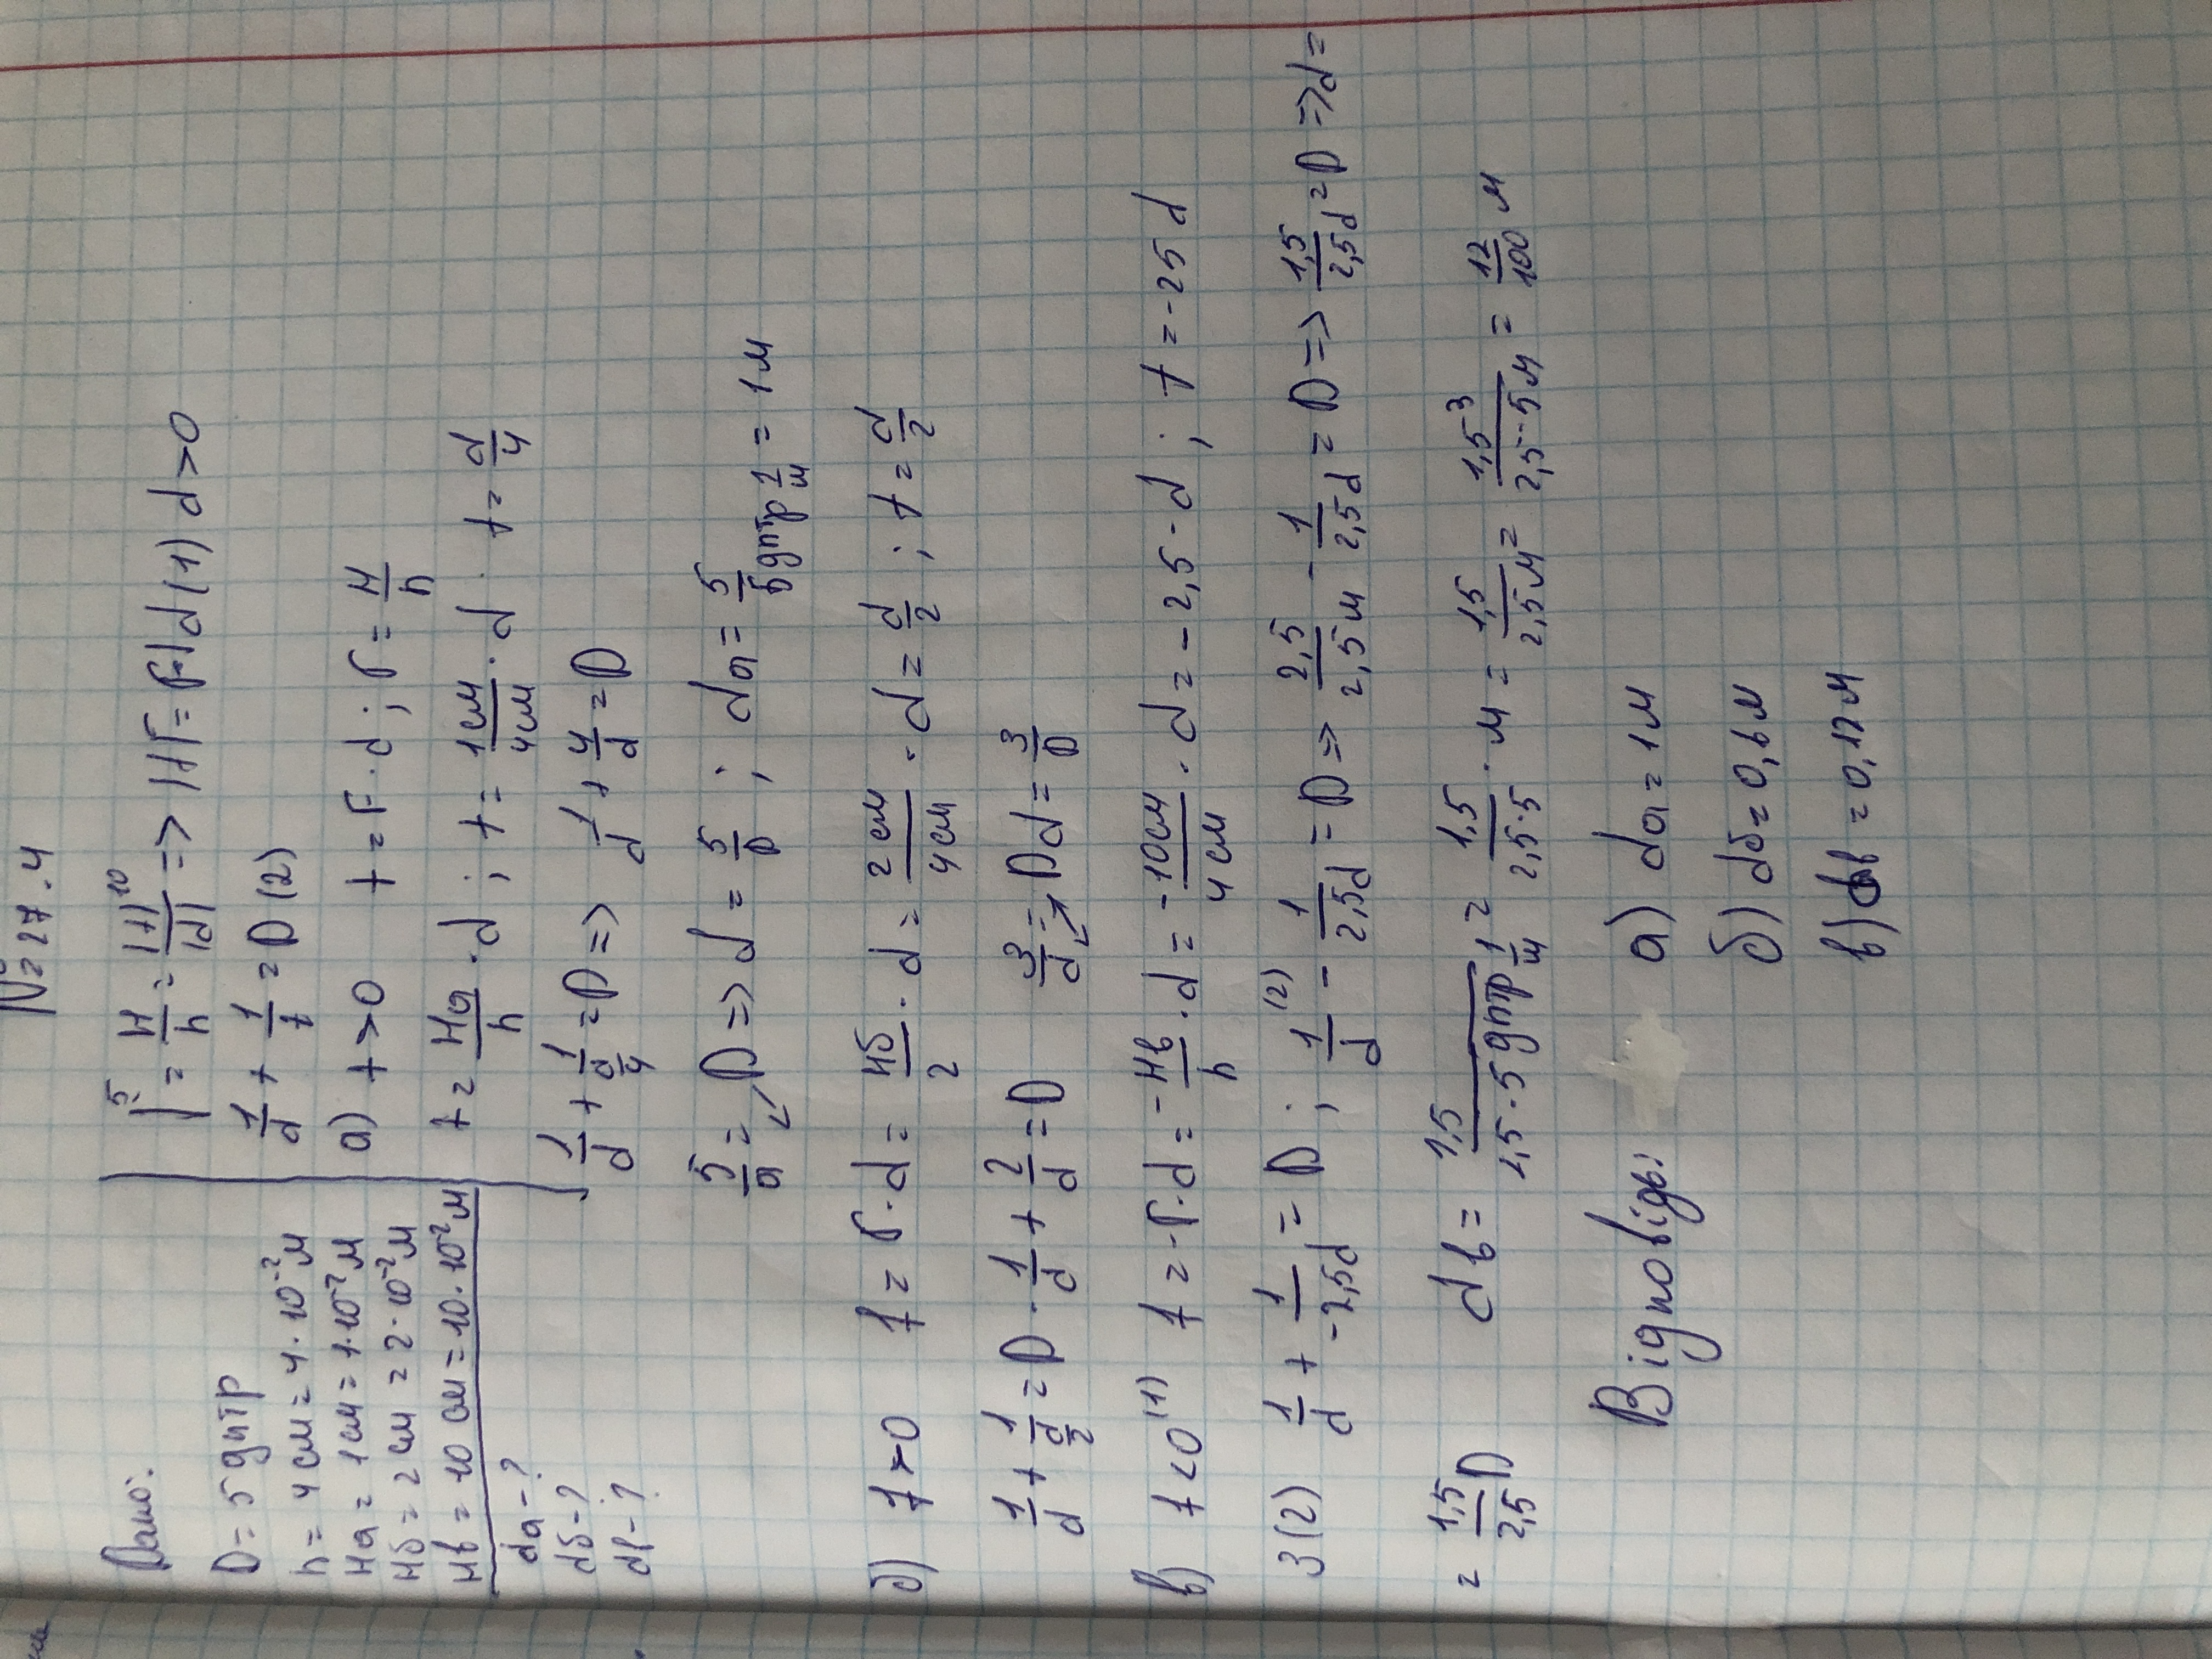 № 27.4
Дано:
D = 5 дптр
h = 4 см = 4·10⁻² м
Hа = 1 см = 1·10⁻² м
Hб = 2 см = 2·10⁻² м
Hв = 10 см = 10·10⁻² м
dа - ?
dб - ?
dв - ?
Г = H/h = |f|/|d| => |f| = Г·|d| (1) d > 0
1/d + 1/f = D (2)
а) f > 0 f = Г·d ; Г = H/h
f = Hа/h · d ; f = 1 см/4 см · d f = d/4
1/d + 1/(d/4) = D => 1/d + 4/d = D
5/d = D => d = 5/D ; dа = 5/5 дптр 1/м = 1 м
б) f > 0 f = Г·d = Hб/2 · d = 2 см/4 см · d = d/2 ; f = d/2
1/d + 1/(d/2) = D · 1/d + 2/d = D 3/d = D d = 3/D
в) f < 0 (1) f = -Г·d = -Hв/h · d = -10 см/4 см · d = -2,5·d ; f = -25 d
З (2) 1/d + 1/-2,5d = D ; 1/d (2) - 1/2,5d = D => 2,5/2,5 м - 1/2,5d = D => 1,5/2,5d = D => d =
= 1,5/2,5D dв = 1,5/2,5·5 дптр 1/м = 1,5/2,5·5 · м = 1,5/2,5 м = 1,5·3/2,5··5 м = 12/100 м
Відповідь: а) dа = 1 м
б) dб = 0,6 м
в) dв = 0,12 м